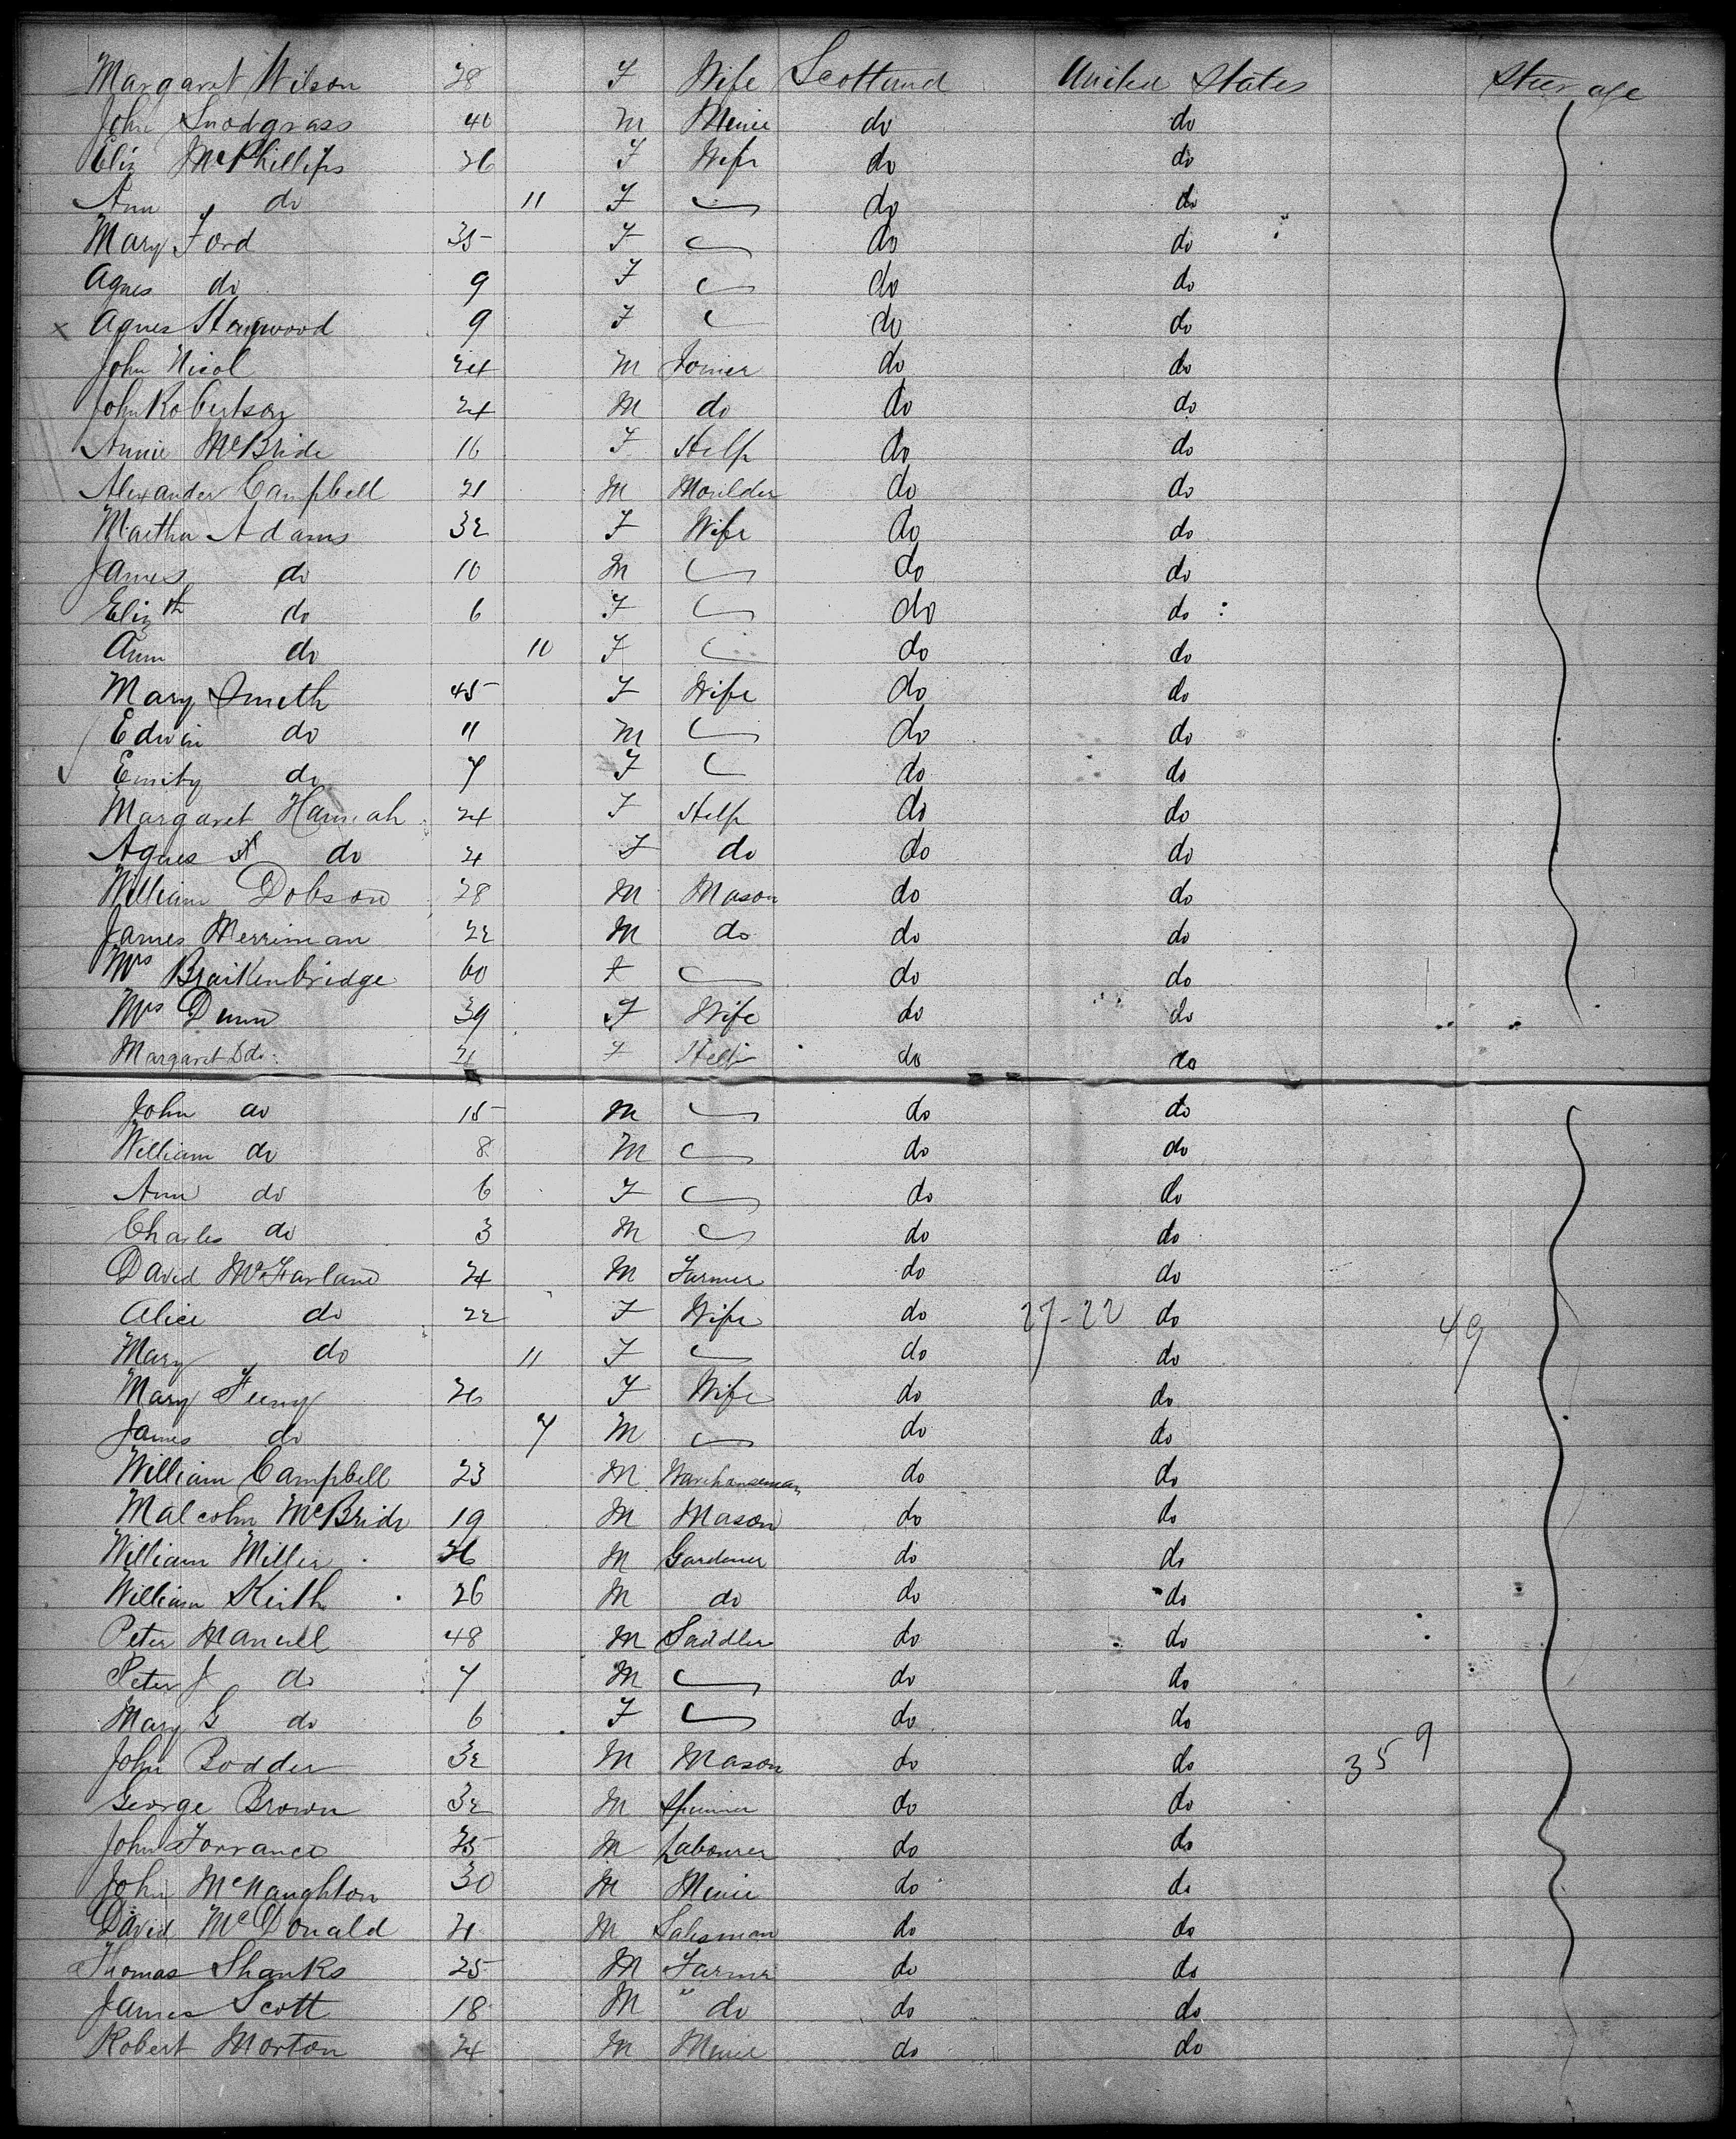 Margaret Wilson 28 F Wife Scotland United States Steerage
John Snodgrass 40 M Miner do do
Eliz McPhillips 26 F Wife do do
Ann do 11 F do do
Mary Ford 35 F do do
Agnes do 9 F do do
x Agnes 9 F do do
John Nicol 24 M Joiner do do
John Robertson 24 M do do do
Annie McBride 16 F Help do do
Alexander Campbell 21 M Moulder do do
Martha Adams 32 F Wife do do
James do 10 M do do
Elizth do 6 F do do
Ann do 10 F do do
Mary Smith 45 F Wife do do
Edwin do 11 M do do
Emily do 7 F do do
Margaret Hannah 24 F Help do do
Agnes do 21 F do do do
William Dobson 28 M Mason do do
James Merriman 22 M do do do
Mrs Braikenbridge 60 F do do
Mrs Dunn 39 F Wife do do
Margaret D do 21 F Help do do
John do 15 M do do
William do 8 M do do
Ann do 6 F do do
Charles do 3 M do do
David McFarland 24 M Farmer do do
Alice do 22 F Wife do 27-22 do 49
Mary do 11 F do do
Mary Feeny 26 F Wife do do
James do 7 M do do
William Campbell 23 M Warehouseman do do
Malcolm McBride 19 M Mason do do
William Miller 26 M Gardener do do
William Keith 26 M do do do
Peter 48 M Saddler do do
Peter J do 7 M do do
Mary G do 6 F do do
John Bodder 32 M Mason do do 359
George Brown 32 M Spinner do do
John Torrance 25 M Labourer do do
John McNaughton 30 M Miner do do
David McDonald 21 M Salesman do do
Thomas Shanks 25 M Farmer do do
James Scott 18 M " do do do
Robert Morton 24 M Miner do do